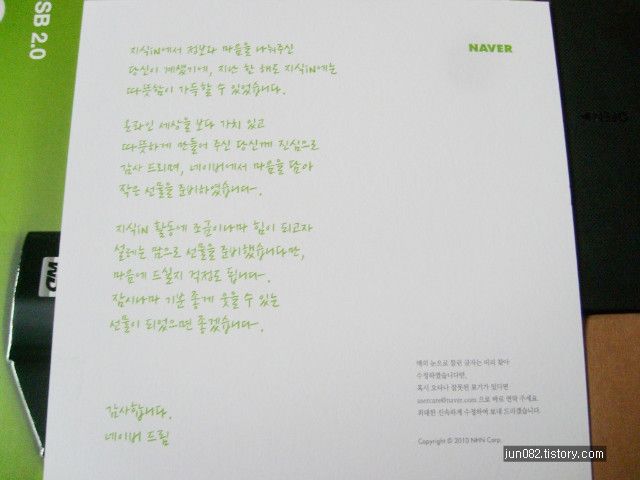 SB 2.0
NAVER
지식iN에서 정보와 마음을 나눠주신
당신이 계셨기에, 지난 한 해도 지식iN에는
따뜻함이 가득할 수 있었습니다.
온라인 세상을 보다 가치 있고
따뜻하게 만들어 주신 당신께 진심으로
감사 드리며, 네이버에서 마음을 담아
작은 선물을 준비하였습니다.
지식iN 활동에 조금이나마 힘이 되고자
설레는 맘으로 선물을 준비했습니다만,
마음에 드실지 걱정도 됩니다.
잠시나마 기분 좋게 웃을 수 있는
선물이 되었으면 좋겠습니다.
감사합니다.
네이버 드림
매의 눈으로 틀린 글자는 미리 찾아
수정하였습니다만,
혹시 오타나 잘못된 표기가 있다면
usercare@naver.com 으로 바로 연락 주세요.
최대한 신속하게 수정하여 보내 드리겠습니다.
Copyright © 2010 NHN Corp.
WD
OPEN
jun082.tistory.com